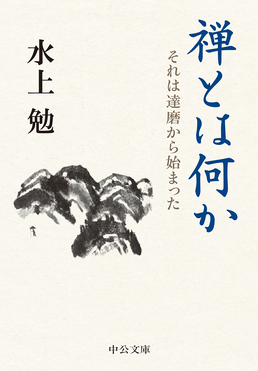 禅とは何か
それは達磨から始まった
水上 勉
中公文庫